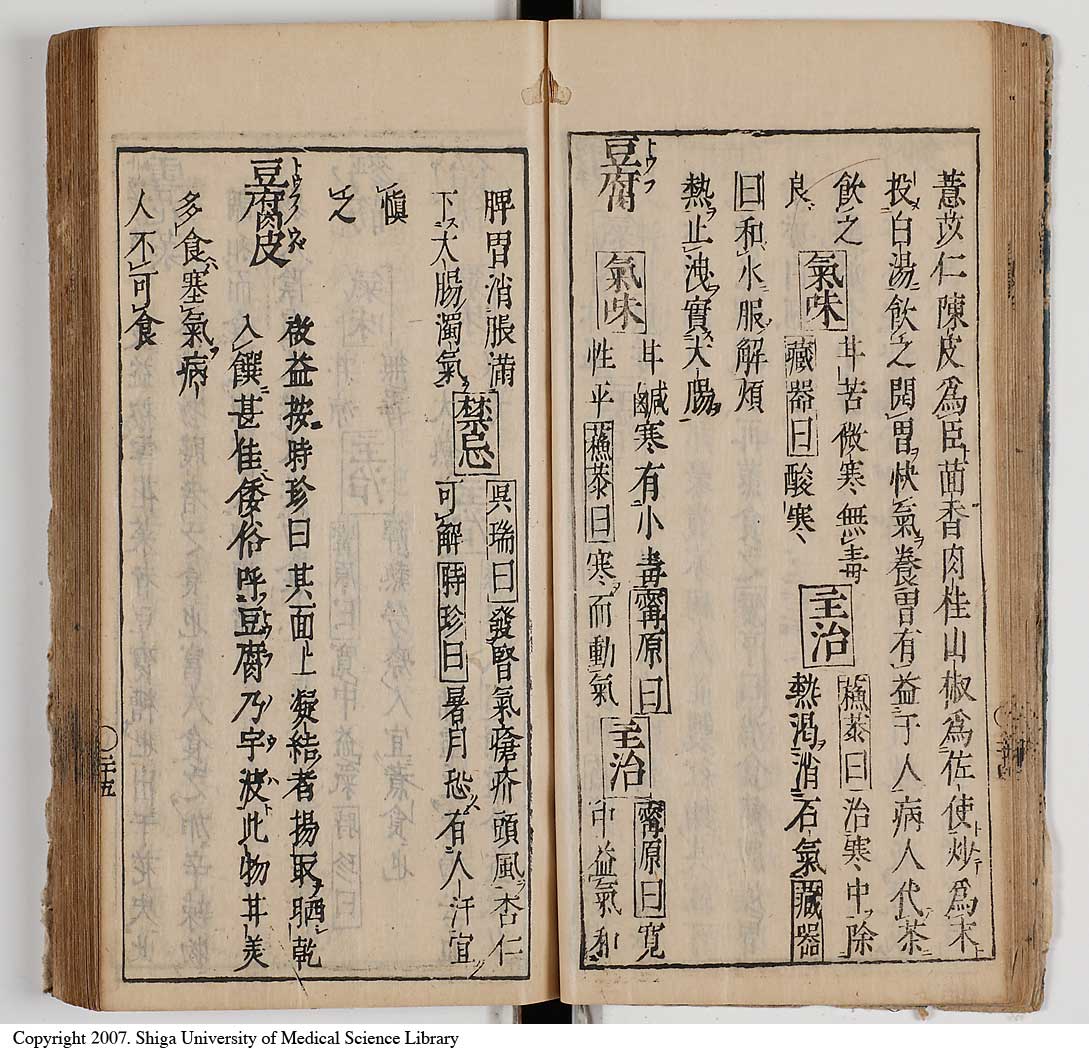 薏苡仁陳皮爲臣茴香肉桂山椒爲佐使炒爲末
投白湯飲之開胃快氣養胃有益于人病人代茶
飲之 氣味 甘苦微寒無毒 主治 蘓恭曰治寒中除
良 藏器曰酸寒 熱渇消石氣藏器
曰和水服解煩
熱止洩實大腸
豆腐 氣味 甘鹹寒有小毒寗原曰 主治 寗原曰寛
性平蘓恭曰寒而動氣 中益氣和
脾胃消脹滿 禁忌 呉瑞曰發腎氣瘡疥頭風杏仁
下大腸濁氣 可解時珍曰暑月恐有人汗宜
愼
之
豆腐皮 啟益按時珍曰其面上凝結者揚取晒乾
入饌甚佳倭俗呼豆腐乃宇波此物甘美
多食塞氣病
人不可食
Copyright 2007. Shiga University of Medical Science Library